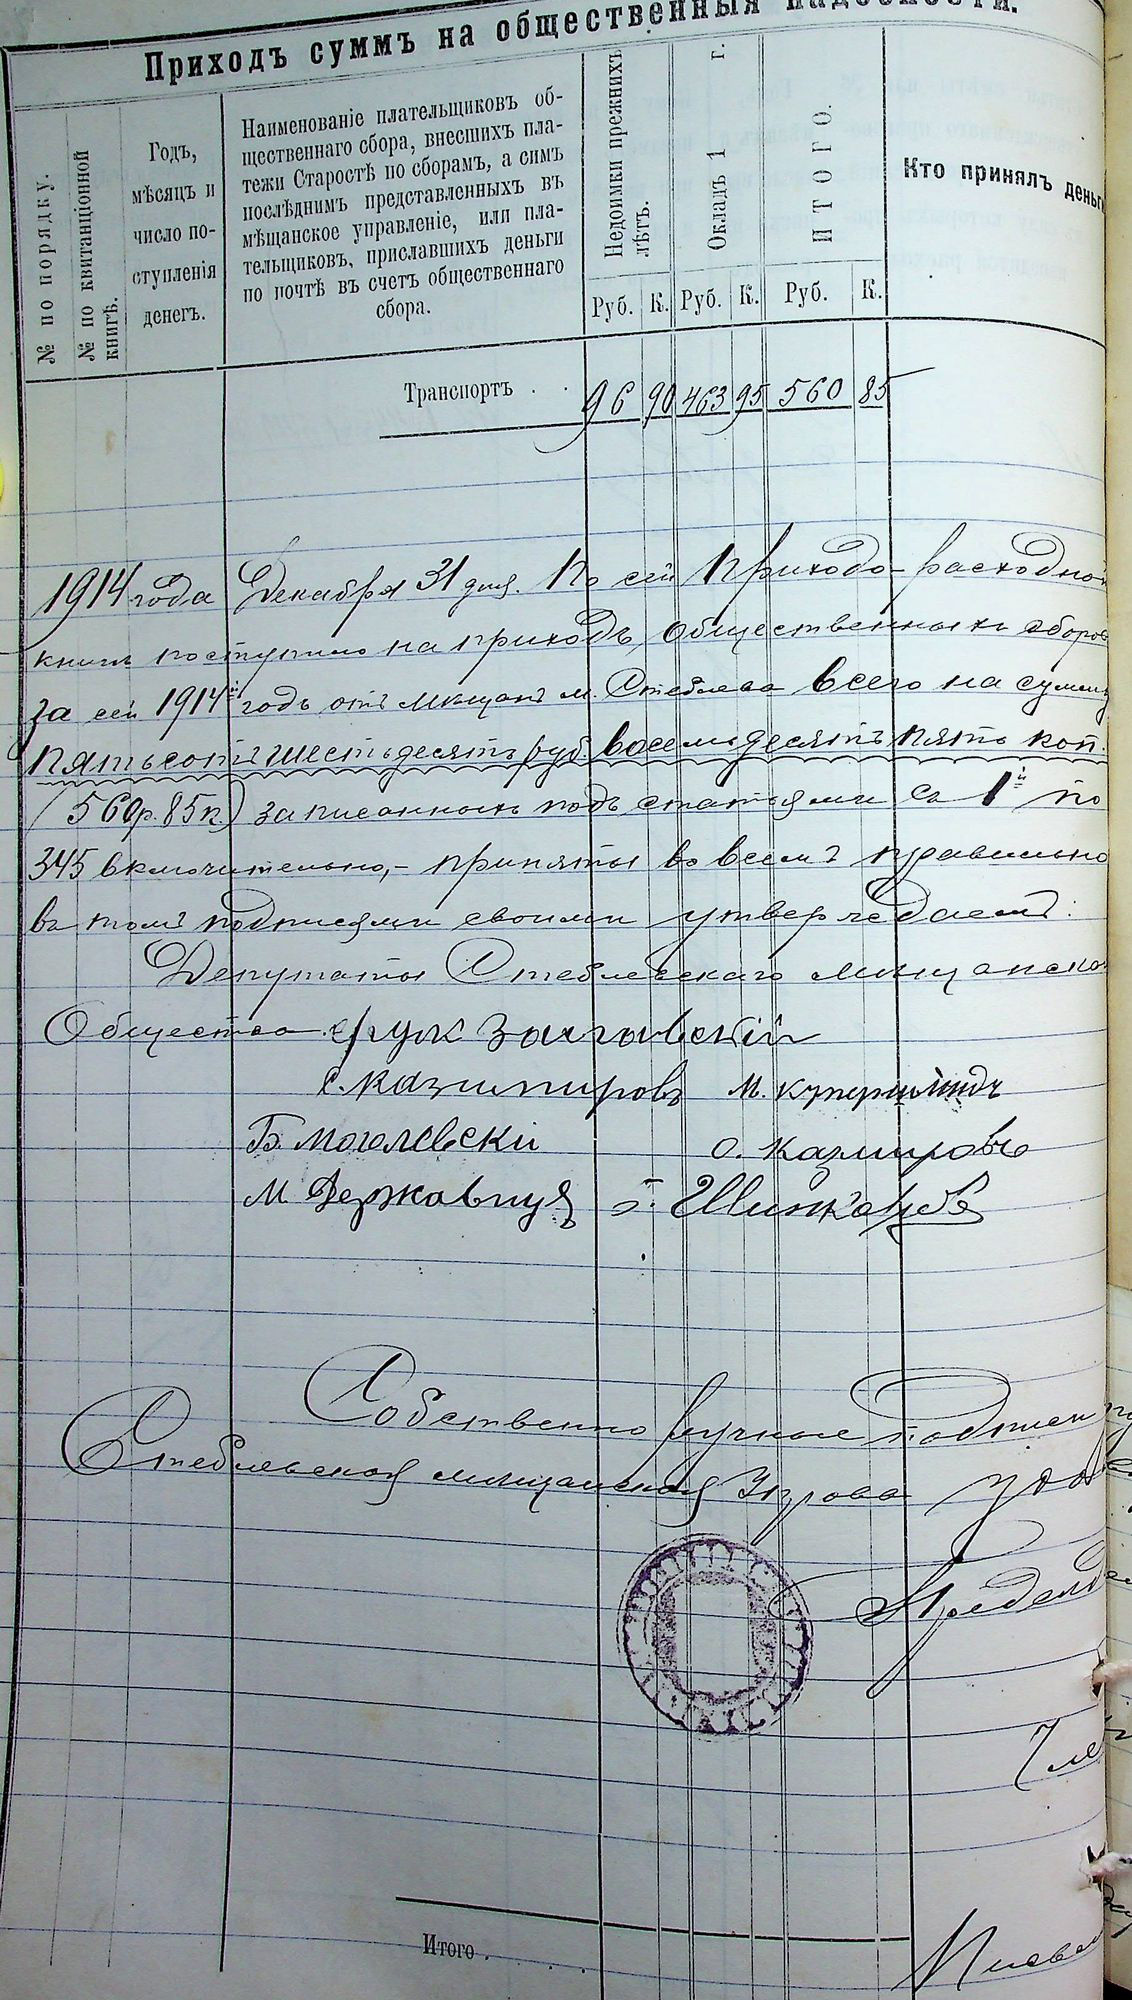 Приходъ суммъ на общественныя надобности.
№ по порядку.
№ по квитанціонной
книгѣ.
Годъ,
мѣсяцъ и
число по-
ступленія
денегъ.
Наименованіе плательщиковъ об-
щественнаго сбора, внесшихъ пла-
тежи Старостѣ по сборамъ, а симъ
послѣднимъ представленныхъ въ
мѣщанское управленіе, или пла-
тельщиковъ, приславшихъ деньги
по почтѣ въ счетъ общественнаго
сбора.
Недоимки прежнихъ
лѣтъ.
Окладъ 1 г.
ИТОГО.
Кто принялъ деньги
Руб. К. Руб. К. Руб. К.
Транспортъ . . 96 90 463 95 560 85
1914 года Декабря 31 дня. По сей Приходо-расходной
книгѣ поступило на приходъ общественныхъ сборовъ
за сей 1914й годъ отъ мѣщанъ м. Стеблева всего на сумму
пятьсотъ шестьдесятъ руб. восемьдесятъ пять коп.
(560р. 85к) записанныхъ подъ статьями съ 1й по
345 включительно,- приняты во всемъ правильно
въ томъ подписями своими утверждаемъ:
Депутаты Стеблевскаго мѣщанска
Общества
С. Казимировъ М.
Б. Могилевскі О. Казмировъ
М Державець Шинкаревъ
Собственно ручные подписи
Стеблевская мѣщанская Управа удо
Чле
Итого . . . .